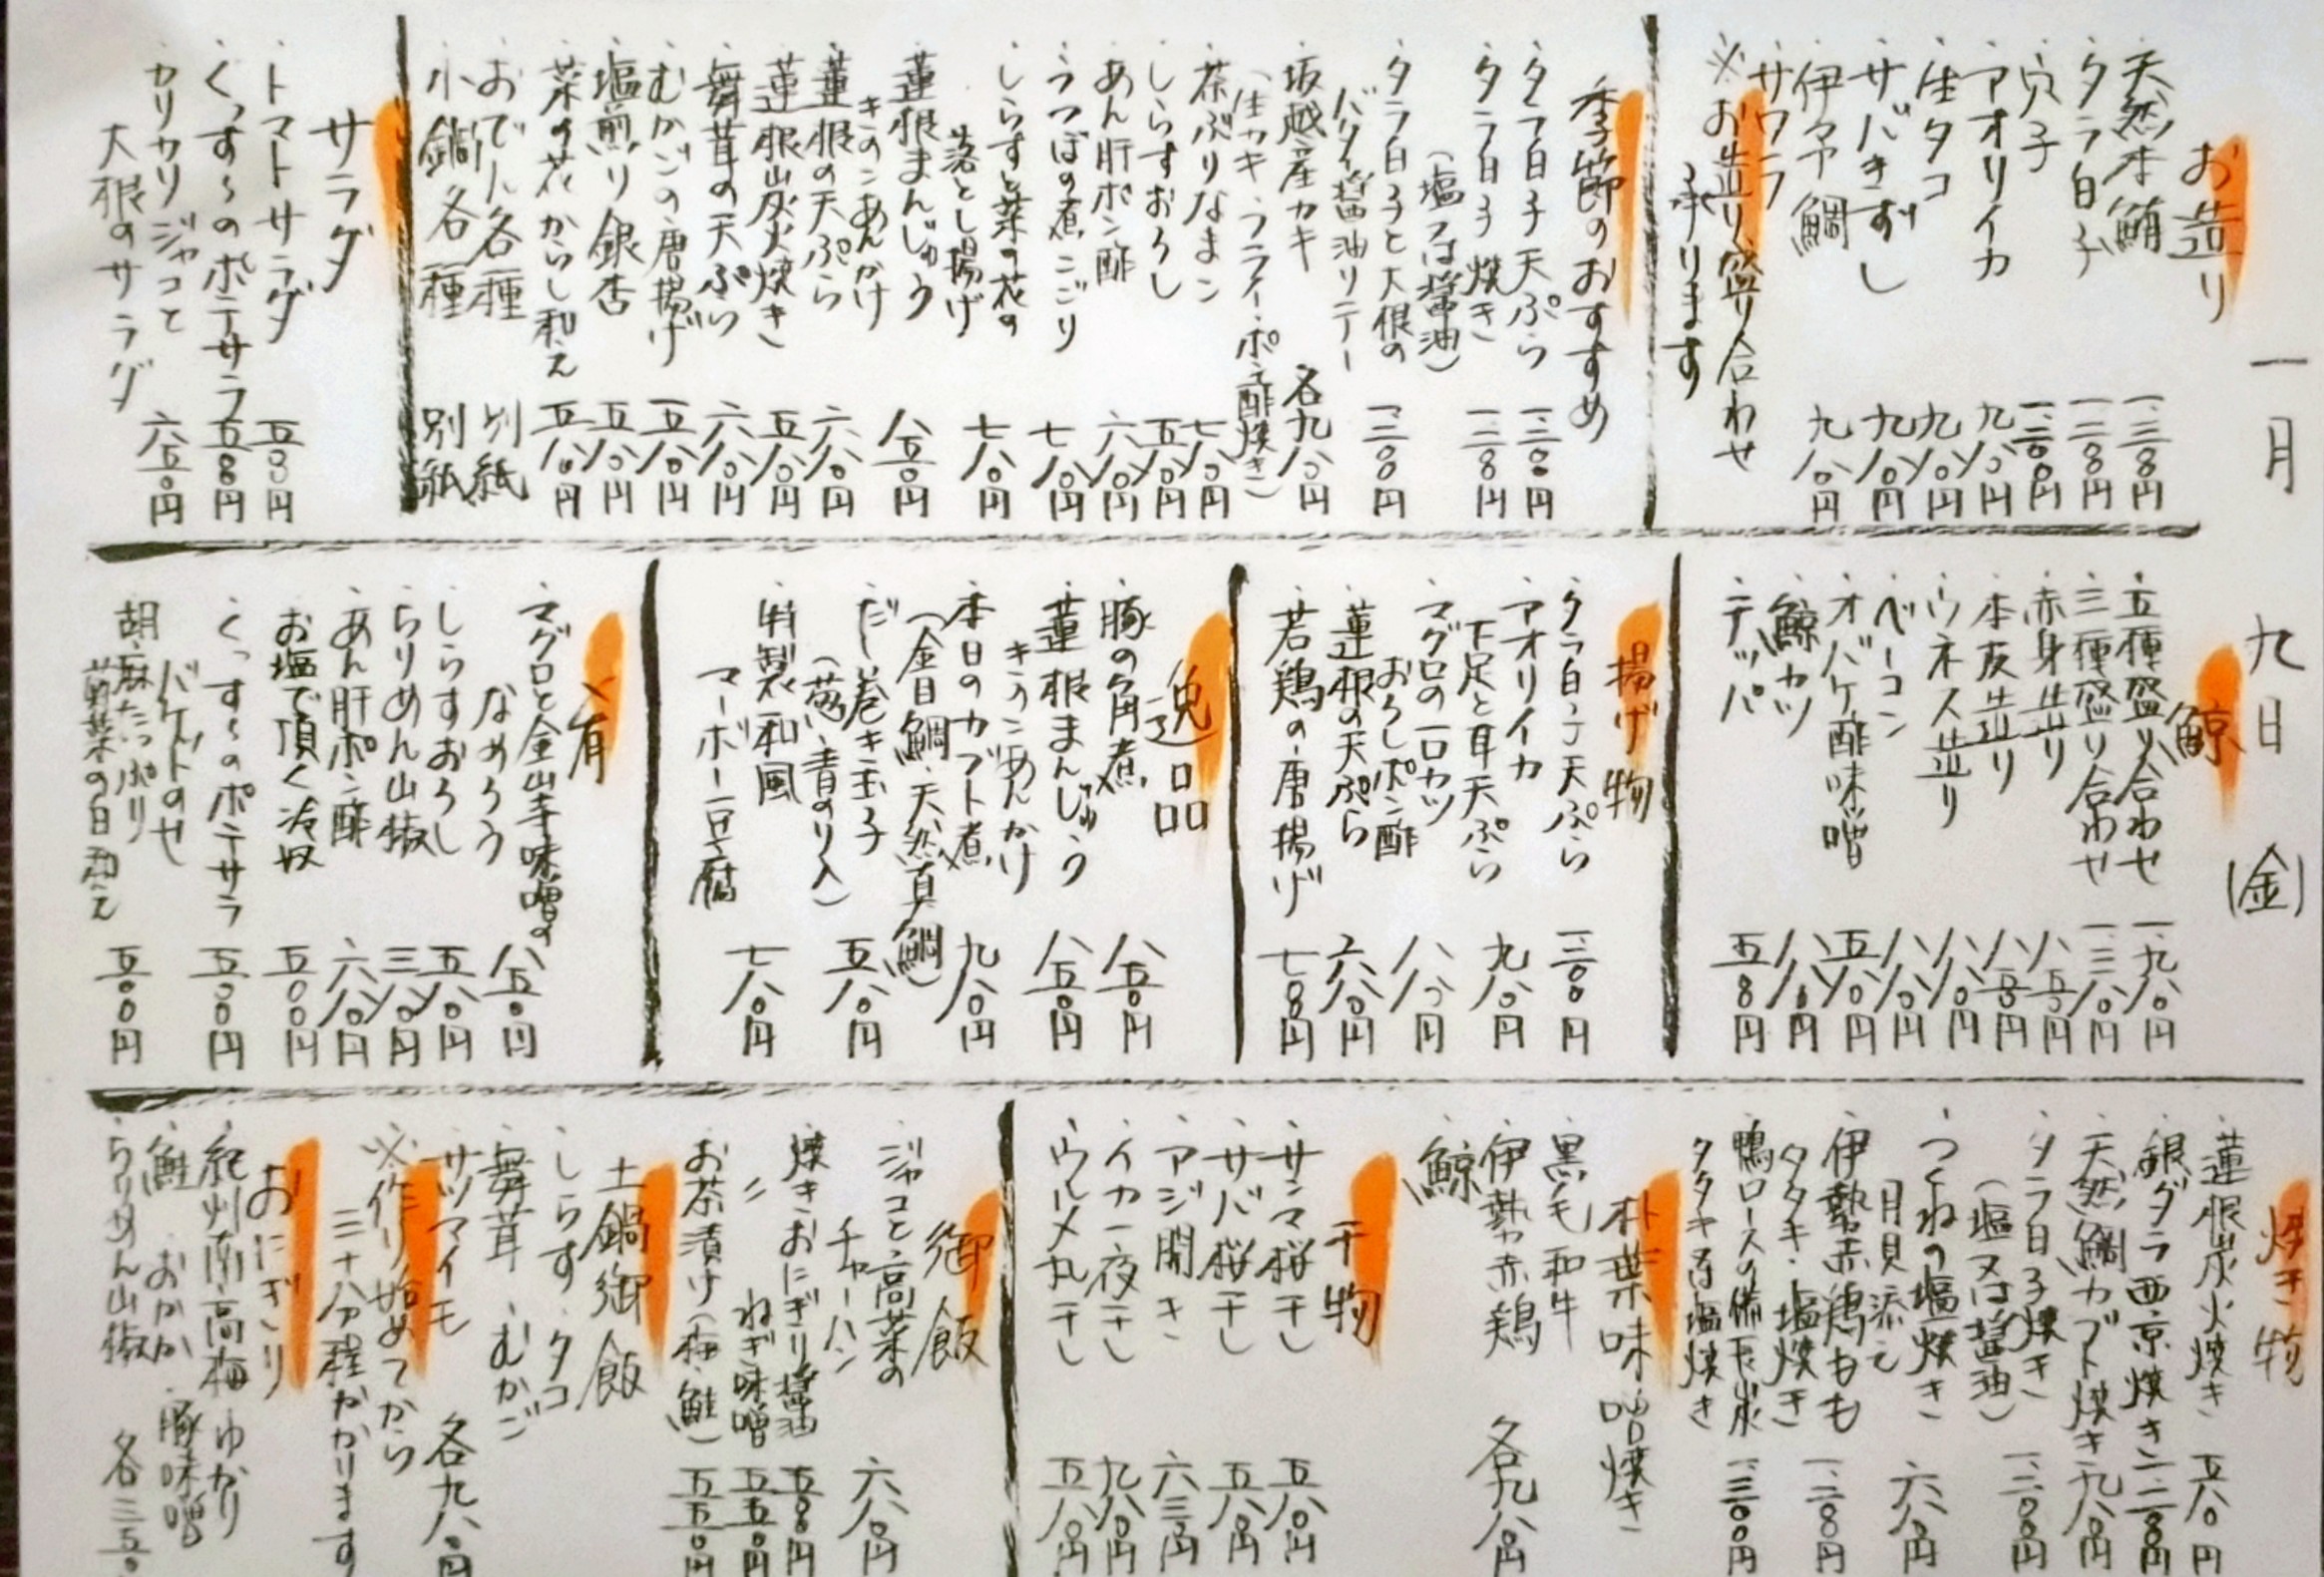 一月 九日 (金)
お造り
・天然本鮪 一、三〇〇円
・タラ白子 一、二〇〇円
・穴子 一、二〇〇円
・アオリイカ 九八〇円
・生タコ 九八〇円
・サバきずし 九八〇円
・伊予鯛 九八〇円
・サワラ
※お造り盛り合わせ
承ります
季節のおすすめ
・タラ白子天ぷら 一、二〇〇円
・タラ白子焼き 一、二〇〇円
(塩又は醤油)
・タラ白子と大根の
バター醤油ソテー 一、二〇〇円
・坂越産カキ 各九八〇円
(生カキ・フライ・ポン酢焼き)
・茶ぶりなまこ 七八〇円
・しらすおろし 五八〇円
・あん肝ポン酢 六八〇円
・うつぼの煮こごり 七八〇円
・しらすと菜の花の
落とし揚げ 七八〇円
・蓮根まんじゅう
きのこあんかけ 八五〇円
・蓮根の天ぷら 六八〇円
・蓮根炭火焼き 五八〇円
・舞茸の天ぷら 六八〇円
・むかごの唐揚げ 五八〇円
・塩煎り銀杏 五八〇円
・菜の花からし和え 五八〇円
・おでん各種 別紙
・小鍋各種 別紙
サラダ
・トマトサラダ 五〇〇円
・くっすーのポテサラ 五〇〇円
・カリカリジャコと
大根のサラダ 六五〇円
鯨
・五種盛り合わせ 一、九八〇円
・三種盛り合わせ 一、三八〇円
・赤身造り 八五〇円
・本皮造り 八五〇円
・ウネス造り 八八〇円
・ベーコン 八八〇円
・オバケ酢味噌 五八〇円
・鯨カツ 八八〇円
・テッパ 五八〇円
揚げ物
・タラ白子天ぷら 一、二〇〇円
・アオリイカ
下足と耳天ぷら 九八〇円
・マグロの一口カツ
おろしポン酢 八八〇円
・蓮根の天ぷら 六八〇円
・若鶏の唐揚げ 七八〇円
逸品
・豚の角煮 八五〇円
・蓮根まんじゅう
きのこあんかけ 八五〇円
・本日のカブト煮 九八〇円
(金目鯛・天然真鯛)
・だし巻き玉子 五八〇円
(葱・青のり入)
・特製和風
マーボー豆腐 七八〇円
肴
・マグロと金山寺味噌の
なめろう 八五〇円
・しらすおろし 五八〇円
・ちりめん山椒 三八〇円
・あん肝ポン酢 六八〇円
・お塩で頂く冷奴 五〇〇円
・くっすーのポテサラ
バゲットのせ 五〇〇円
・胡麻たっぷり
菊菜の白和え 五〇〇円
焼き物
・蓮根炭火焼き 五八〇円
・銀ダラ西京焼き 一、二〇〇円
・天然鯛カブト焼き 九八〇円
・タラ白子焼き 一、二〇〇円
(塩又は醤油)
・つくねの塩焼き
月見添え 六八〇円
・伊勢赤鶏もも
タタキ・塩焼き 一、二八〇円
・鴨ロースの備長炭
タタキ又は塩焼き 一、三〇〇円
朴葉味噌焼き
黒毛和牛
伊勢赤鶏 各九八〇円
鯨
干物
・サンマ桜干し 五八〇円
・サバ桜干し 五八〇円
・アジ開き 六三〇円
・イカ一夜干し 九八〇円
・ウルメ丸干し 五八〇円
御飯
・ジャコと高菜の
チャーハン 六八〇円
・焼きおにぎり醤油 五〇〇円
〃 ねぎ味噌 五五〇円
・お茶漬け(梅・鮭) 五五〇円
土鍋御飯
・しらす・タコ
・舞茸・むかご
・サツマイモ 各九八〇円
※作り始めてから
三十分程かかります
おにぎり
・紀州南高梅・ゆかり
・鮭・おかか・豚味噌
・ちりめん山椒 各三五〇